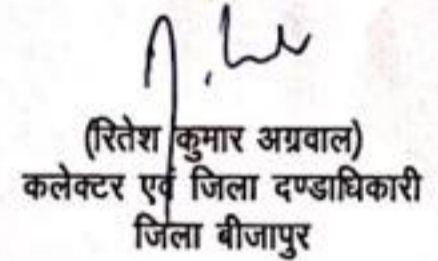 (रितेश कुमार अग्रवाल)
कलेक्टर एवं जिला दण्डाधिकारी
जिला बीजापुर